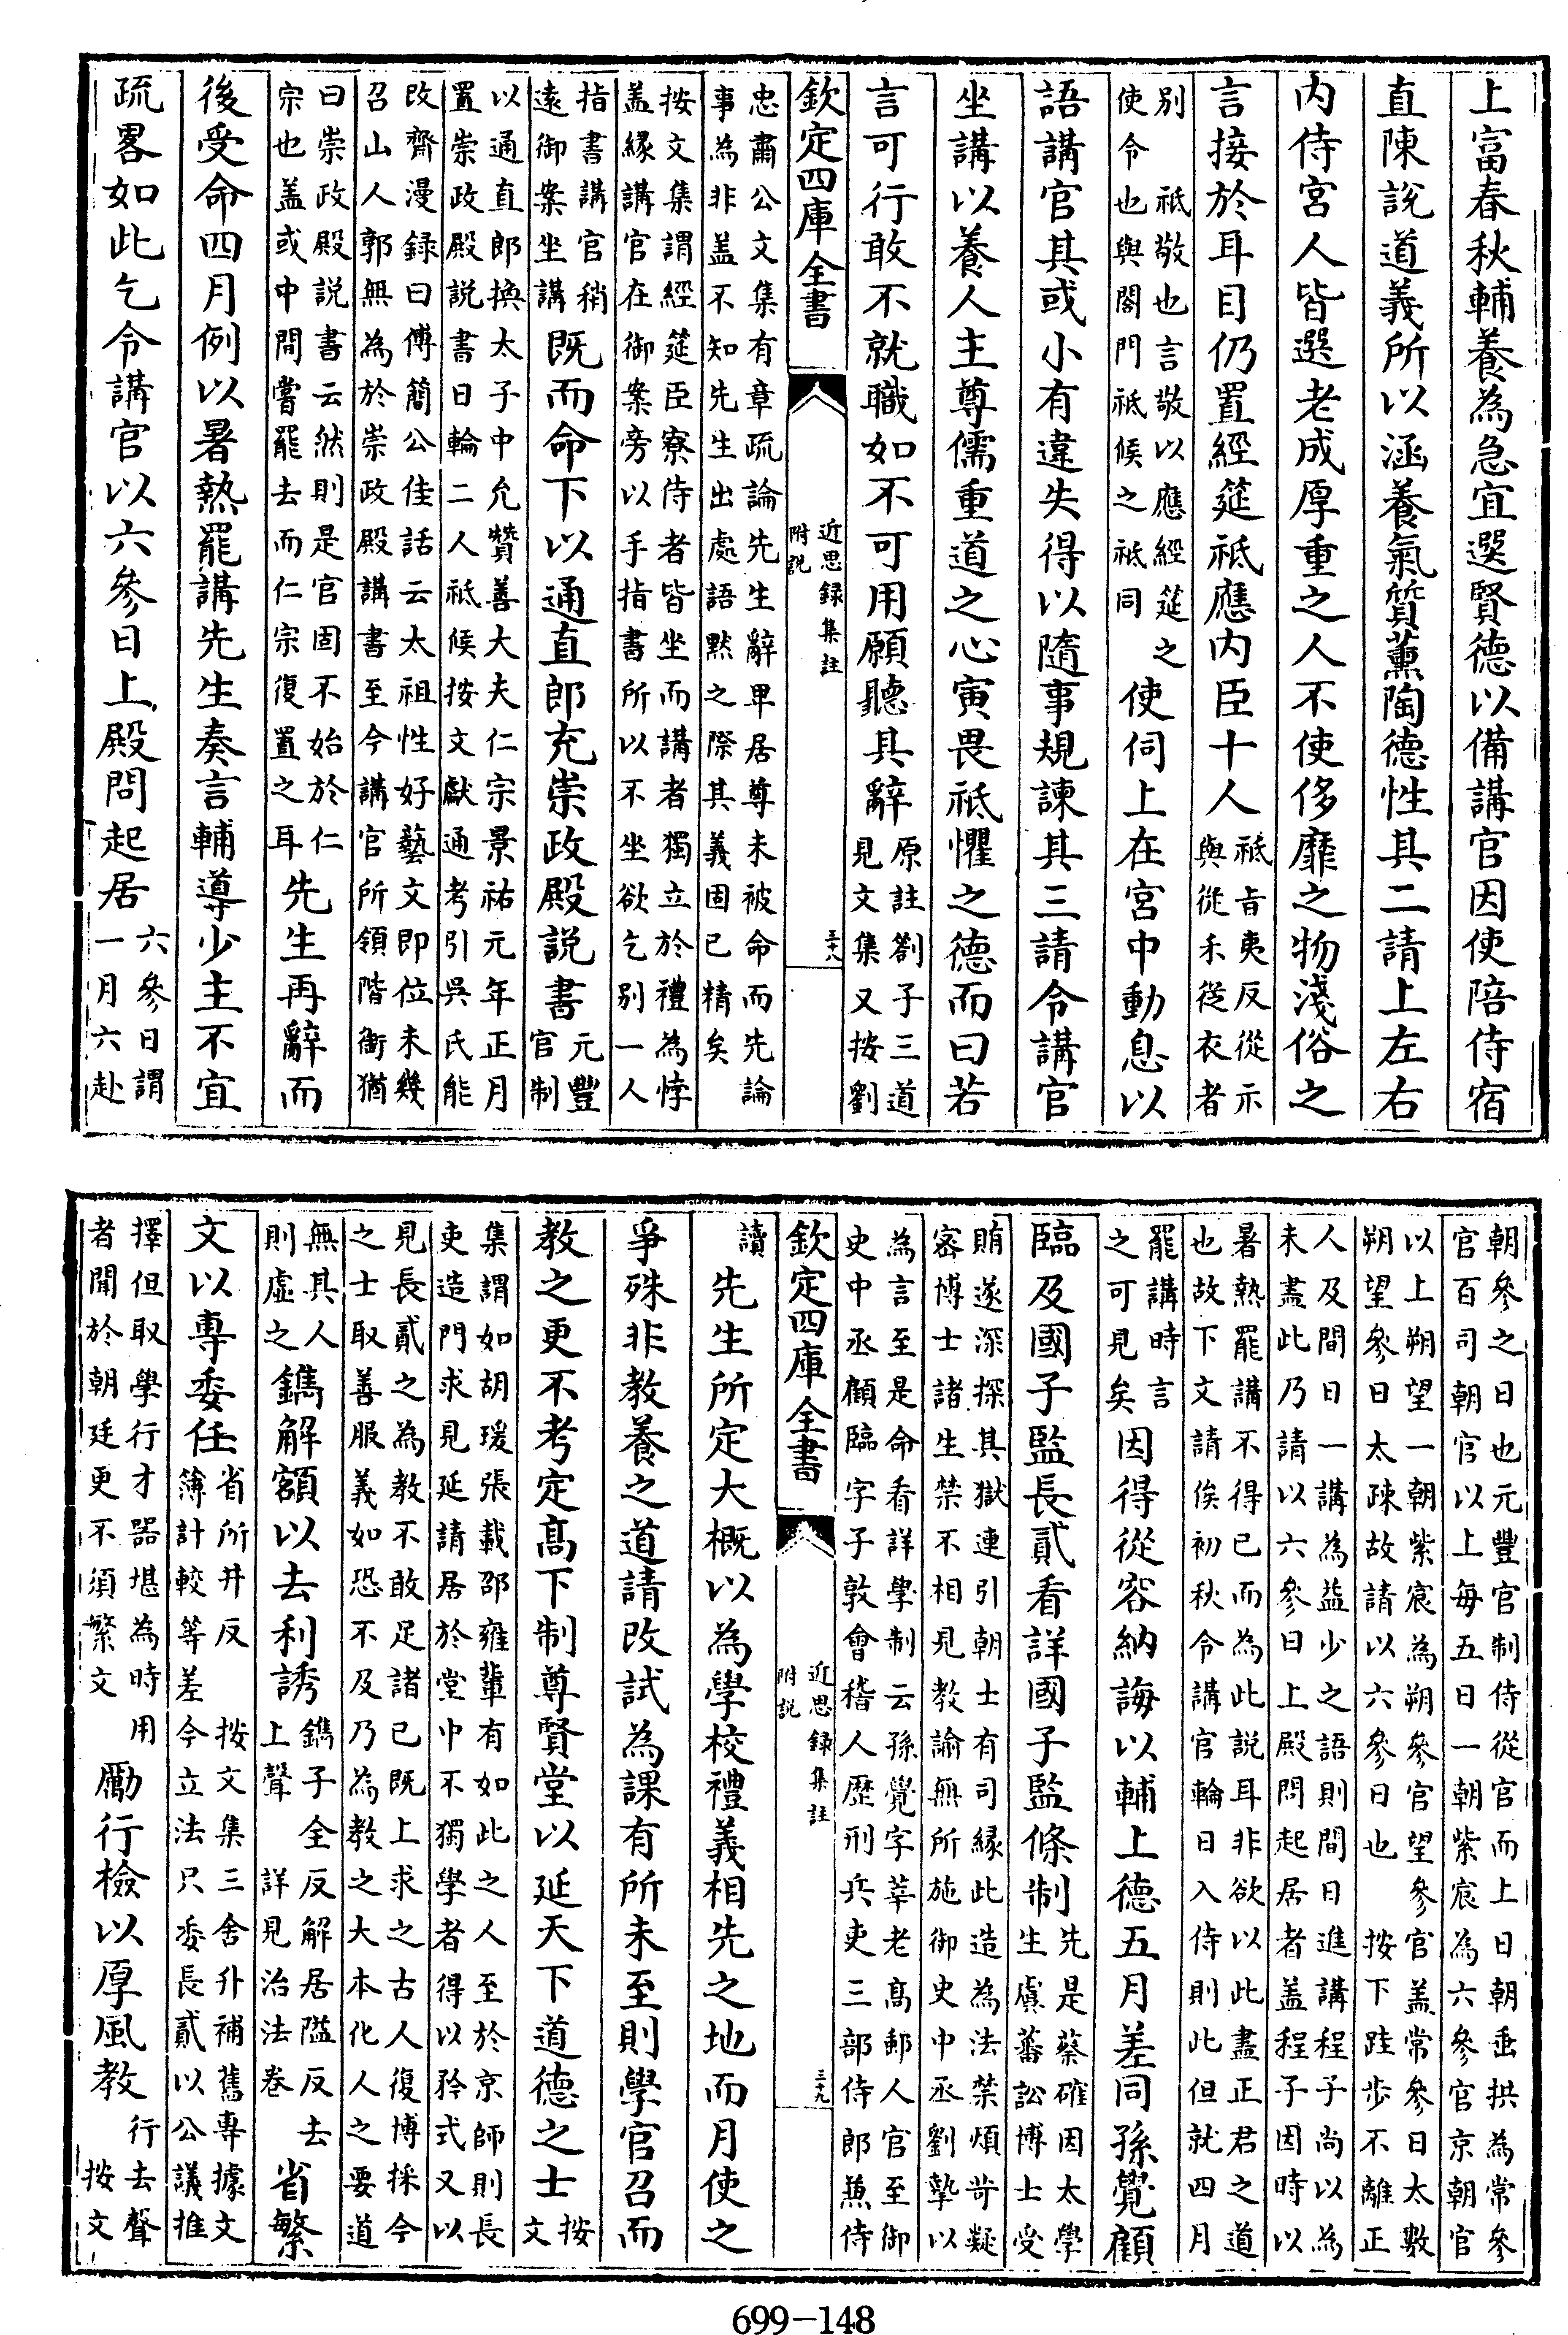 上富春秋輔養為急宜選賢德以備講官因使陪侍宿
直陳說道義所以涵養氣質薰陶德性其二請上左右
内侍宮人皆選老成厚重之人不使侈靡之物淺俗之
言接於耳目仍置經筵祗應内臣十人祗旨夷反從示
與從禾從衣者
别　祗敬也言敬以應經筵之
使令也與閤門祗候之祗同　使伺上在宮中動息以
語講官其或小有違失得以隨事規諫其三請令講官
坐講以養人主尊儒重道之心寅畏祗懼之德而曰若
言可行敢不就職如不可用願聽其辭原註劄子三道
見文集又按劉
欽定四庫全書　近思録集註附説　三十八
忠肅公文集有章疏論先生辭卑居尊未被命而先論
事為非盖不知先生出處語黙之際其義固已精矣
按文集謂經筵臣寮侍者皆坐而講者獨立於禮為悖
盖縁講官在御案旁以手指書所以不坐欲乞别一人
指書講官稍
遠御案坐講既而命下以通直郎充崇政殿説書元豐
官制
以通直郎換太子中允贊善大夫仁宗景祐元年正月
置崇政殿説書日輪二人祗候按文獻通考引吳氏能
改齋漫録曰傅簡公佳話云太祖性好藝文即位未幾
召山人郭無為於崇政殿講書至今講官所領階銜猶
曰崇政殿説書云然則是官固不始於仁
宗也盖或中間嘗罷去而仁宗復置之耳先生再辭而
後受命四月例以暑熱罷講先生奏言輔導少主不宜
疏畧如此乞令講官以六參日上殿問起居六參日謂
一月六赴
朝參之日也元豐官制侍從官而上日朝垂拱為常參
官百司朝官以上每五日一朝紫宸為六參官京朝官
以上朔望一朝紫宸為朔參官望參官盖常參日太數
朔望參日太疎故請以六參日也　按下跬步不離正
人及間日一講為益少之語則間日進講程子尚以為
未盡此乃請以六參日上殿問起居者盖程子因時以
暑熱罷講不得已而為此說耳非欲以此盡正君之道
也故下文請俟初秋令講官輪日入侍則此但就四月
罷講時言
之可見矣因得從容納誨以輔上德五月差同孫覺顧
臨及國子監長貳看詳國子監條制先是蔡確因太學
生虞蕃訟博士受
賄遂深探其獄連引朝士有司縁此造為法禁煩苛凝
宻博士諸生禁不相見教諭無所施御史中丞劉摯以
為言至是命看詳學制云孫覺字莘老高郵人官至御
史中丞顧臨字子敦會稽人歴刑兵吏三部侍郎兼侍
欽定四庫全書　近思録集註附説　三十九
讀　先生所定大概以為學校禮義相先之地而月使之
爭殊非教養之道請改試為課有所未至則學官召而
教之更不考定高下制尊賢堂以延天下道德之士按
文
集謂如胡瑗張載邵雍輩有如此之人至於京師則長
吏造門求見延請居於堂中不獨學者得以矜式又以
見長貳之為教不敢足諸已既上求之古人復博採今
之士取善服義如恐不及乃為教之大本化人之要道
無其人
則虛之鐫解額以去利誘鐫子全反解居隘反去
上聲　詳見治法卷　省繁
文以專委任省所井反　按文集三舍升補舊專據文
簿計較等差今立法只委長貳以公議推
擇但取學行才器堪為時用
者聞於朝廷更不須繁文勵行檢以厚風教行去聲
按文
699-148